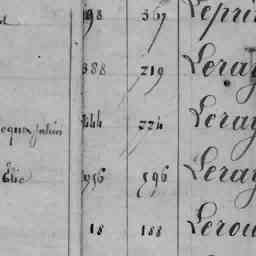 98 367 Lepri
388 219 Leray
444 224 Leray
Elie 956 596 Leray
18 188 Lerou